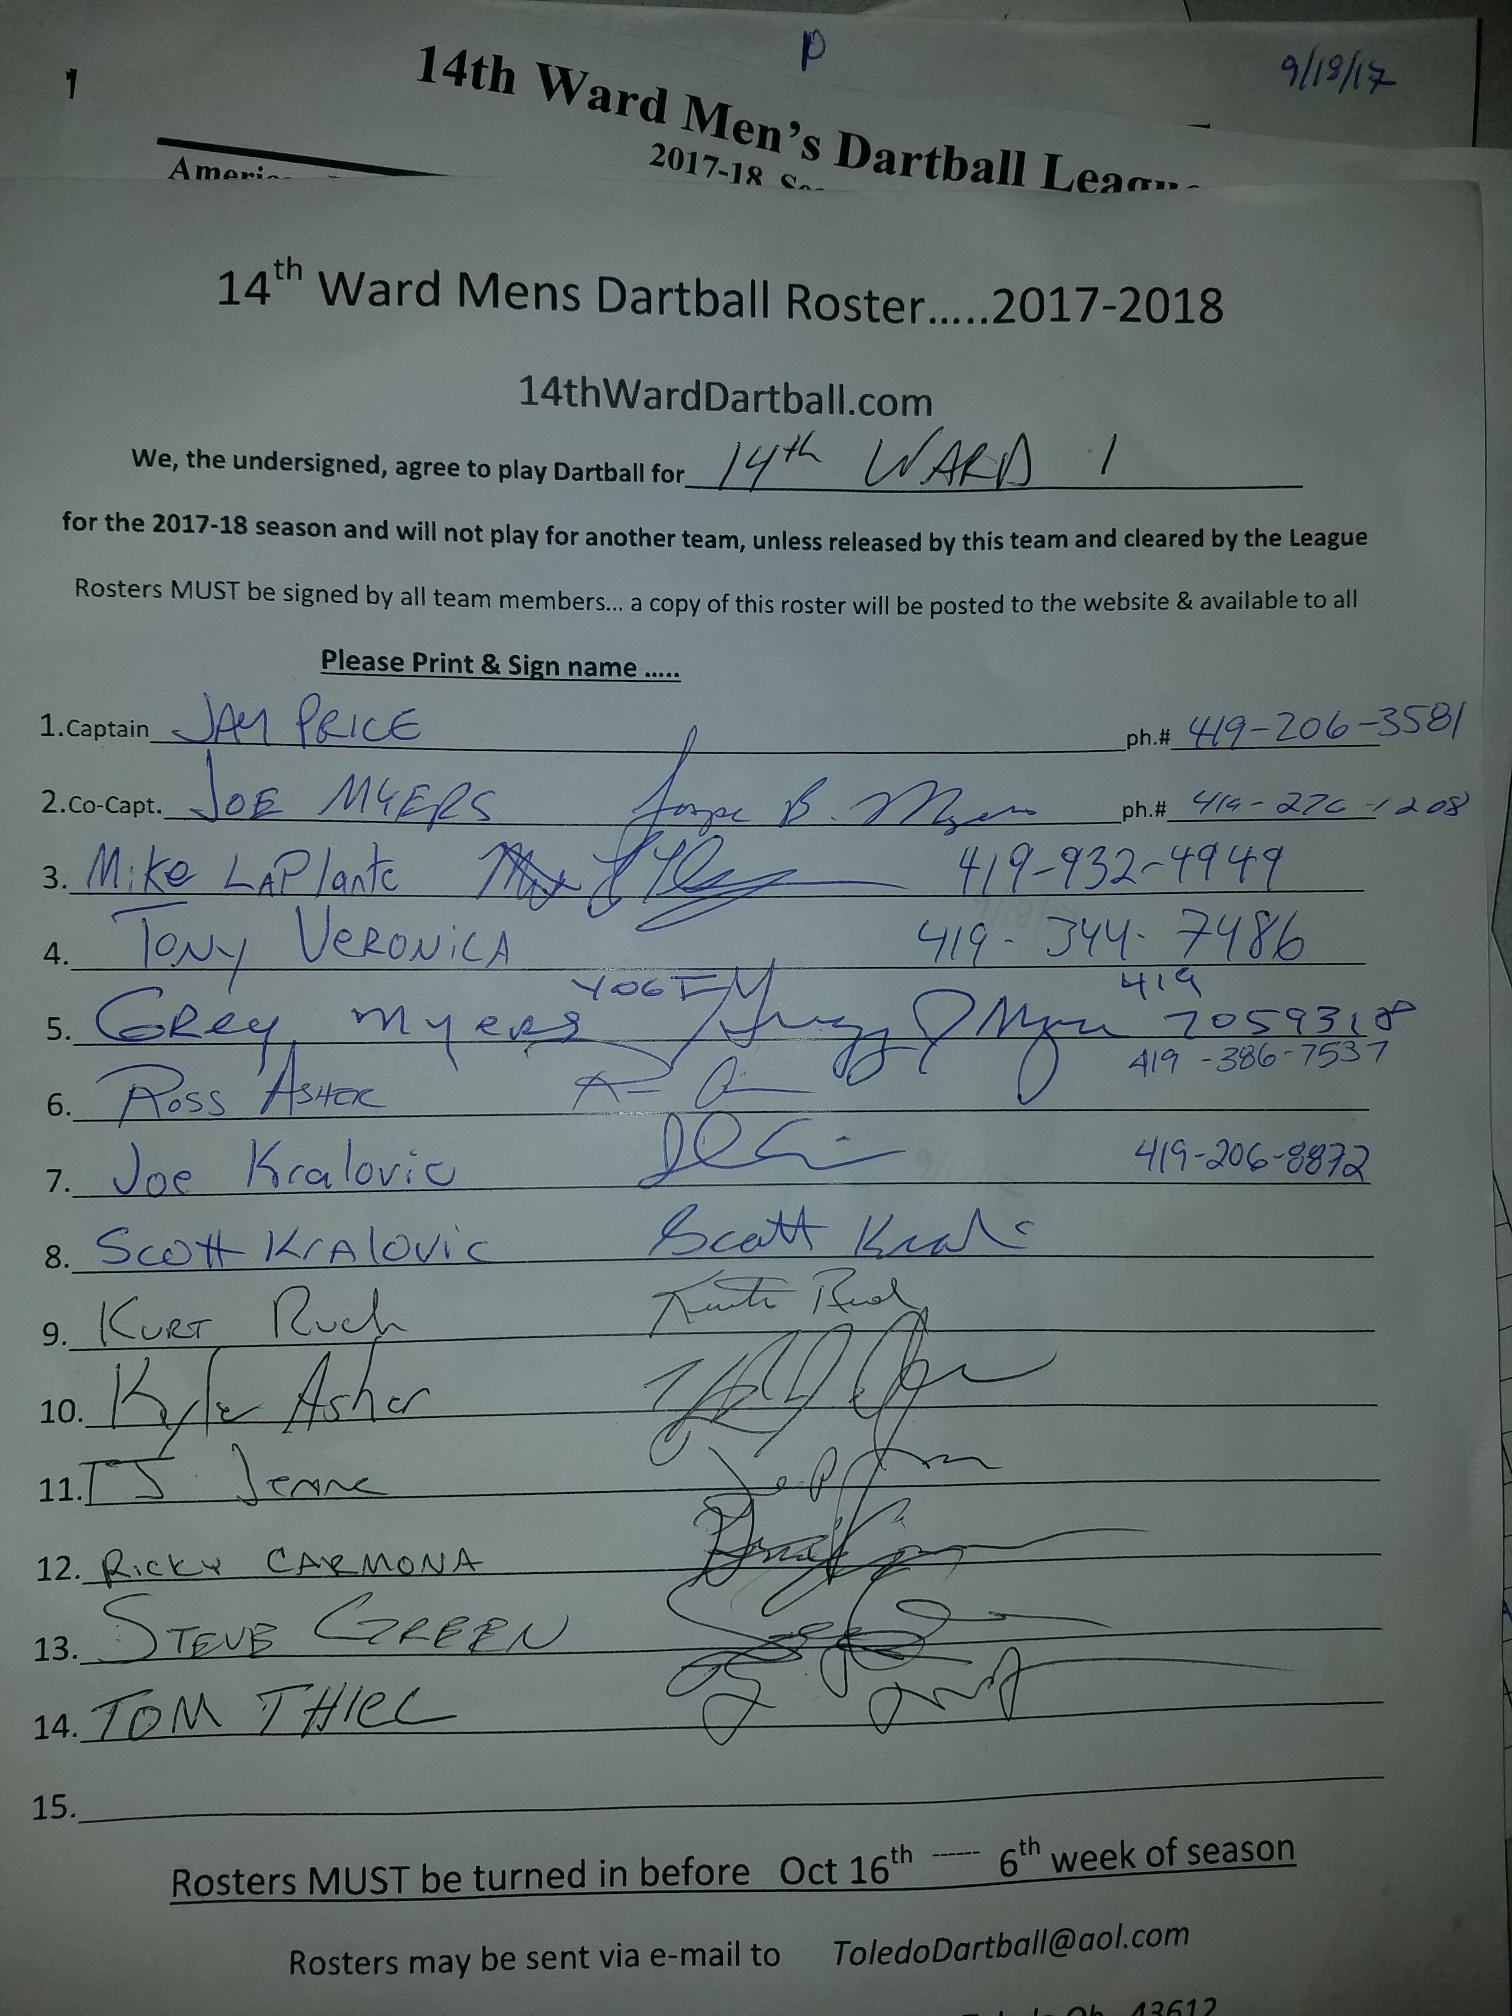 1 P 9/19/17
14th Ward Men's Dartball League
2017-18
14th Ward Mens Dartball Roster.....2017-2018
14thWardDartball.com
We, the undersigned, agree to play Dartball for 14th WARD 1
for the 2017-18 season and will not play for another team, unless released by this team and cleared by the League
Rosters MUST be signed by all team members... a copy of this roster will be posted to the website & available to all
Please Print & Sign name .....
1.Captain JAY PRICE ph.# 419-206-3581
2.Co-Capt. JOE MYERS B. Myers ph.# 419-276-1208
3. Mike LAPlante 419-932-4949
4. TONY VERONICA 419-344-7486
YOGI 419
5. GREG Myers 7059318
419-386-7537
6. ROSS ASHER
7. Joe Kralovic 419-206-8872
8. Scott KrAlovic Scott
9. KURT Ruch
10. Kyle Asher
11. TJ Jenne
12. RICKY CARMONA
13. STEVE GREEN
14. TOM THIEL
15.
Rosters MUST be turned in before Oct 16th ------ 6th week of season
Rosters may be sent via e-mail to ToledoDartball@aol.com
43612